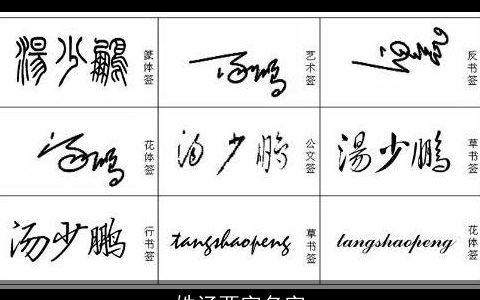 湯少鵬 篆体签
艺术签
反书签
花体签
汤少鹏 公文签
湯少鹏 草书签
汤少鹏 行书签
tangshaopeng 草书签
tangshaopeng 花体签
姓汤两字名字